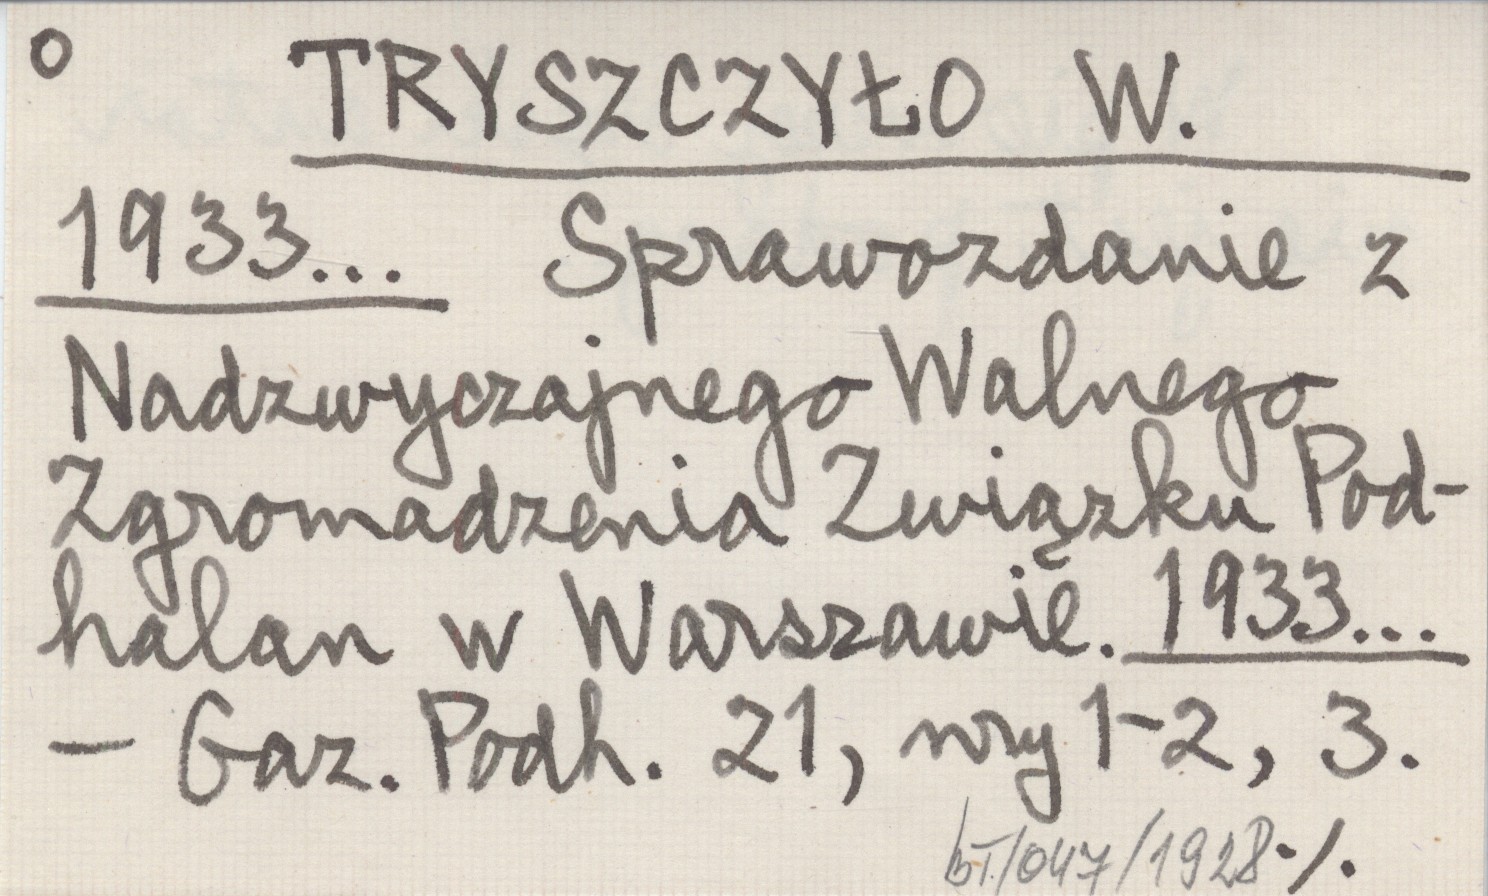 O TRYSZCZYŁO W.
1933... Sprawozdanie z
Nadzwyczajnego Walnego
Zgromadzenia Związku Pod-
halan w Warszawie. 1933...
– Gaz. Podh. 21, nry 1-2, 3.
/047/1928-/.